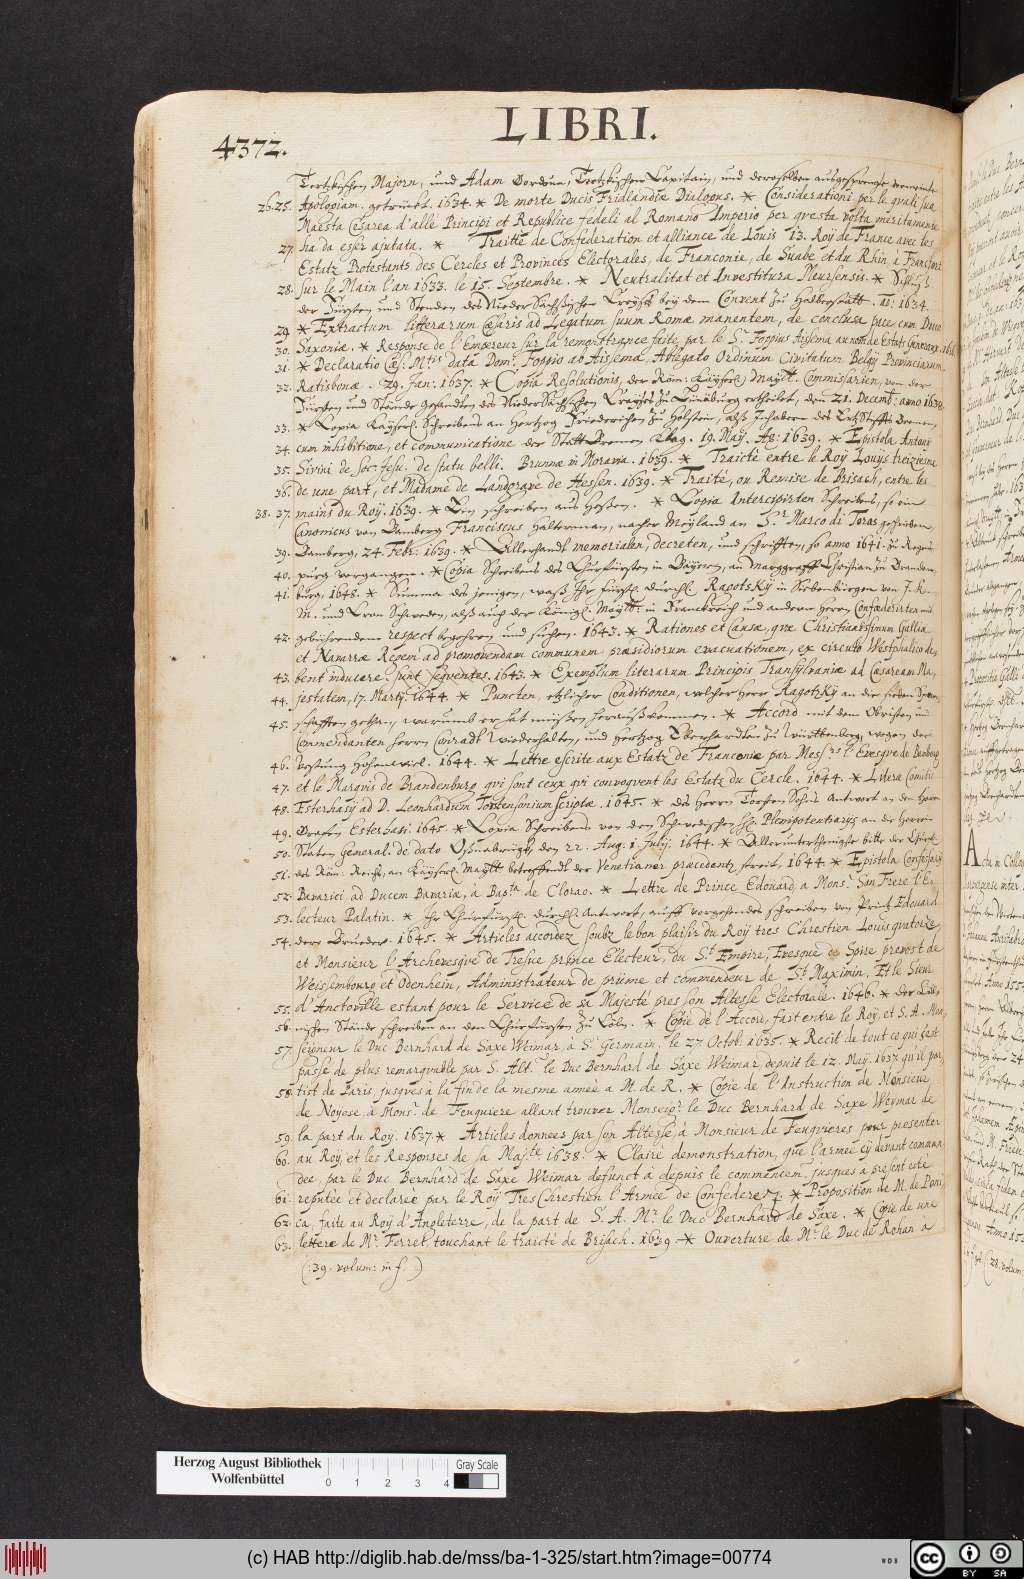 LIBRI.
4372.
Tertzkischen Majorn, und Adam Gordon, Tertzkischen Capitain, und deroselben
26. 25. Apologiam, getruckt. 1634. * De morte Ducis Fridlandiæ Dialogus. * Considerationi per le quali sua
Maesta Cesarea d'alle Principi et Republice fedeli al Romano Imperio per qvesta volta meritamente
27. ha da esser ajutata. * Traitte de Confederation et alliance de Louis 13. Roÿ de France avec les
Estatz Protestants des Cercles et Provinces Electorales, de Franconie, de Suabe et du Rhin, a Francfort
28. sur le Main l'an 1633. le 15. Septembre. * Neutralitat et Investitura Pleursensis. *
der Fürsten und Stenden des NiederSächsischen Creÿses beÿ dem Convent zu Halberstatt. Aõ: 1634.
29. * Extractum litterarum Cæsaris ad Legatum suum Romæ manentem, de conclusa pace cum Duce
30. Saxoniæ. * Response de l'Empereur sur la remonstrance faite par le S.r Foppius Aissema au nom de Estats Generaux.
31. * Declaratio Cæs: M.tis data Dom. Foppio ab Aissema, Ablegato Ordinum Civitatum Belgÿ Provinciarum
32. Ratisbonæ. 29. Jan: 1637. * Copia Resolutionis, der Röm: Kaÿserl. Maÿtt. Commissarien, von der
Fürsten und Stände gesandten des NiederSächsischen Creÿses zu Lünäburg ertheilet, den 21. Decemb: anno 1638.
33. * Copia Kaÿserl. Schreibens an Hertzog Friederichen zu Holstein, alß Inhabern des ErtzStiffts Bremen,
34. cum inhibitione, et communicatione der Statt Bremen Klag. 19. Maÿ. Aõ: 1639. * Epistola Antoni
35. Sivini de Soc. Jesu. de statu belli. Brunnæ in Moravia. 1639. * Traicté entre le Roÿ Louÿs treizieme
36. de une part, et Madame de Landgrave de Hessen. 1639. * Traité, ou Remise de Brisach, entre les
38. 37. mains du Roÿ. 1639. * Ein schreiben aus Hessen. * Copia Intercipirten Schreibens, so ein
Canonicus von Bamberg Franciscus Halterman, nacher Meÿland an S.r Marco di Toras geschrieben
39. Bamberg, 24. Febr: 1639. * Allerhandt memorialen, decreten, und schrifften, so anno 1641. zu Regens-
40. purg vorgangen. * Copia Schreibens des Churfürsten in Baÿern, an Marggraff Christian zu Branden-
41. burg, 1643. * Summa des jenigen, waß Ihr fürstl. durchl. Ragotskÿ in Siebenbürgen von J. K.
M. und Cron Schweden, alß auch der Königl. Maÿtt: in Franckreich und andern herrn Confœderirten mit
42. gebührendem respect begehren und suchen. 1643. * Rationes et Causæ, qvæ Christianissimum Galliæ
et Navarræ Regem ad promovendam communem præsidiorum evacuationem, ex circulo Westphalico de-
43. bent inducere, sunt seqventes. 1643. * Exemplum literarum Principis Transÿlvaniæ ad Cæsaream Ma-
44. jestatem, 17. Martÿ. 1644. * Puncten, etzlicher Conditionen, welcher herr Ragotzkÿ an die sieben
45. schafften gethan, warumb er hat müssen herauß kommen. * Accord mit dem Obristen und
Commendanten herrn Conradt Wiederholten, und hertzog Eberhardten zu Württemberg, wegen der
46. Vestung Hohentwiel. 1644. * Lettre escrite aux Estatz de Franconie par Mess.rs l'Evesqve de Bamberg
47. et le Marqvis de Brandenburg qvi sont ceux qvi convoqvent les Estatz du Cercle. 1644. * Litera Comitis
48. Esterhasÿ ad D. Leonhardum Torstensonium scriptæ. 1645. * des herrn Torsten Sohns Antwort an den herrn
49. Grafen Esterhasi 1645. * Copia Schreibens von den Schwedischen Plenipotentiarÿs an die Herren
50. Staten General. de dato Oßnabrügk, den 22. Aug: 1. Julÿ. 1644. * Allerunterthänigste bitte der Churf.
51. des Röm: Reichs, an Kaÿserl. Maÿtt betreffendt der Venetianer præcedentz streit, 1644 * Epistola Confessarÿ
52. Bavarici ad Ducem Bavariæ, à Bap.ta de Clorao. * Lettre de Prince Edouard, a Mons.r Son Frere l'E-
53. lecteur Palatin. * Ihr Churfürstl. durchl. Antwort, auff vorgehendes schreiben von Printz Edouard
54. dero Bruedern. 1645. * Articles accordez soubz le bon plaisir du Roÿ tres Chrestien Louis qvatorze,
et Monsieur l'Archevesqve de Tresve prince Electeur, du S.t Empire, Evesqve de Spire, prevost de
Weissembourg et Odenheim, Administrateur de prüme et commendeur de St. Maximin, Et le Sieur
55. d'Anctoville estant pour le Service de sa Majesté pres son Altesse Electorale. 1646. * der
56. nischen Stände schreiben an den Churfürsten zu Cöln. * Copie de l'Accord, fait entre le Roÿ, et S. A. Mon-
57. seigneur le Duc Bernhard de Saxe Weimar, à S.t Germain, le 27 Octob. 1635. * Recit de tout ce qui s'est
passé de plus remarqvable par S. Alt.e le Duc Bernhard de Saxe Weimar depuit le 12. Maÿ. 1637 qu'il par-
58. tist de Paris, jusqves à la fin de la mesme année a M. de R. * Copie de l'Instruction de Monsieur
de Noyose, à Mons.r de Feuquiere allant trouver Monseig.r le Duc Bernhard de Saxe Weimar de
59. la part du Roÿ. 1637. * Articles donnees par son Altesse, à Monsieur de Feuqvieres pour presenter
60. au Roÿ, et les Responses de sa Maj.té 1638. * Claire demonstration, que l'armee cÿ devant comman-
dee, par le Duc Bernhard de Saxe Weimar defunct à depuis le commencem.t jusques a present esté
61. reputée et declarée par le Roÿ Tres Chrestien l'Armée de Confederez. * Proposition de M. de Poni-
62. ca, faite au Roÿ d'Angleterre, de la part de S. A. M.r le Duc Bernhard de Saxe. * Copie de une
63. lettere de M.r Ferret, touchant le traicté de Brisach. 1639 * Ouverture de M.r le Duc de Rohan a
(: 39. volum: in f.o)
Herzog August Bibliothek
Wolfenbüttel
0 1 2 3 4
Gray Scale
(c) HAB http://diglib.hab.de/mss/ba-1-325/start.htm?image=00774
WDB
cc BY SA